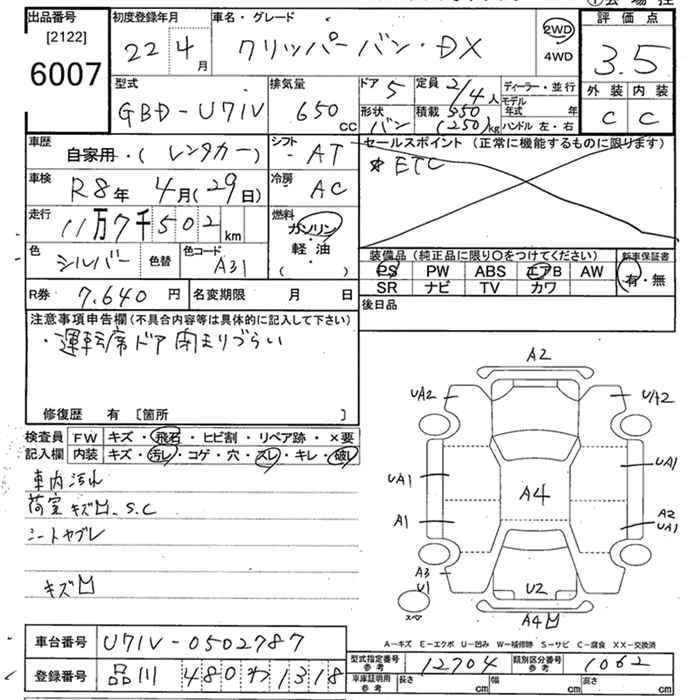 出品番号
[2122]
6007
初度登録年月
22 4月
車名・グレード
クリッパーバン・DX
2WD
4WD
評価点
3.5
型式
GBD-U71V
排気量
650 cc
ドア 5
形状 バン
定員 2/4人
積載 350 (250)kg
ディーラー・並行
モデル年式 年
ハンドル 左・右
外装 内装
C C
車歴
自家用・(レンタカー)
シフト
AT
セールスポイント (正常に機能するものに限ります)
* ETC
車検
R8年 4月(29日)
冷房
AC
走行
11万7千502 km
燃料
ガソリン
・
軽・油
( )
色
シルバー
色替
色コード
A31
装備品 (純正品に限り○をつけてください)
新車保証書
PS PW ABS エアB AW
有・無
SR ナビ TV カワ
R券 7,640円
名変期限 月 日
後日品
注意事項申告欄(不具合内容等は具体的に記入して下さい)
・運転席ドア閉まりづらい
修復歴 有 [箇所 ]
検査員 FW キズ・飛石・ヒビ割・リペア跡・×要
記入欄 内装 キズ・汚レ・コゲ・穴・スレ・キレ・破レ
車内汚れ
荷室キズ凹、S.C
シートヤブレ
キズ凹
A2
UA2 U/A2
UA1 UA1
A4
A1 A2
UA1
A3
U1 U2
スペア
A4凹
A-キズ E-エクボ U-凹み W-補修跡 S-サビ C-腐食 XX-交換済
車台番号 U71V-0502787
登録番号 品川 480 わ 1318
型式指定番号参考 12704
類別区分番号参考 1062
車庫証明用参考 長さ cm 幅 cm 高さ cm